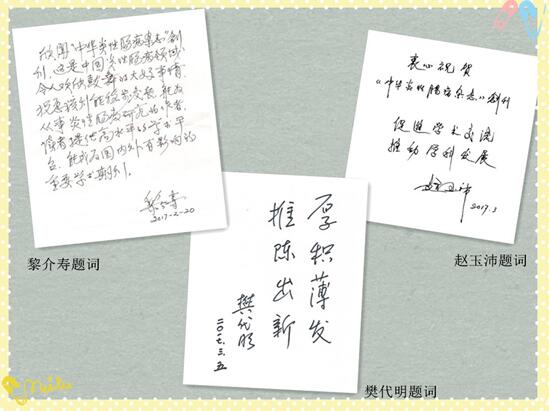 欣闻“中华炎性肠病杂志”创
刊，这是中国炎性肠病领域
令人欢欣鼓舞的大好事情。
祝愿该刊能稳步成长，就为
从事炎性肠病研究的作者、
读者提供高水平的学术平
台，能成为国内外有影响的
重要学术期刊。
黎介寿
2017-2-20
黎介寿题词
衷心祝贺
《中华炎性肠病杂志》创刊
促进学术交流
推动学科发展
赵玉沛
2017.3
赵玉沛题词
厚积薄发
推陈出新
樊代明
二〇一七.三.五
樊代明题词